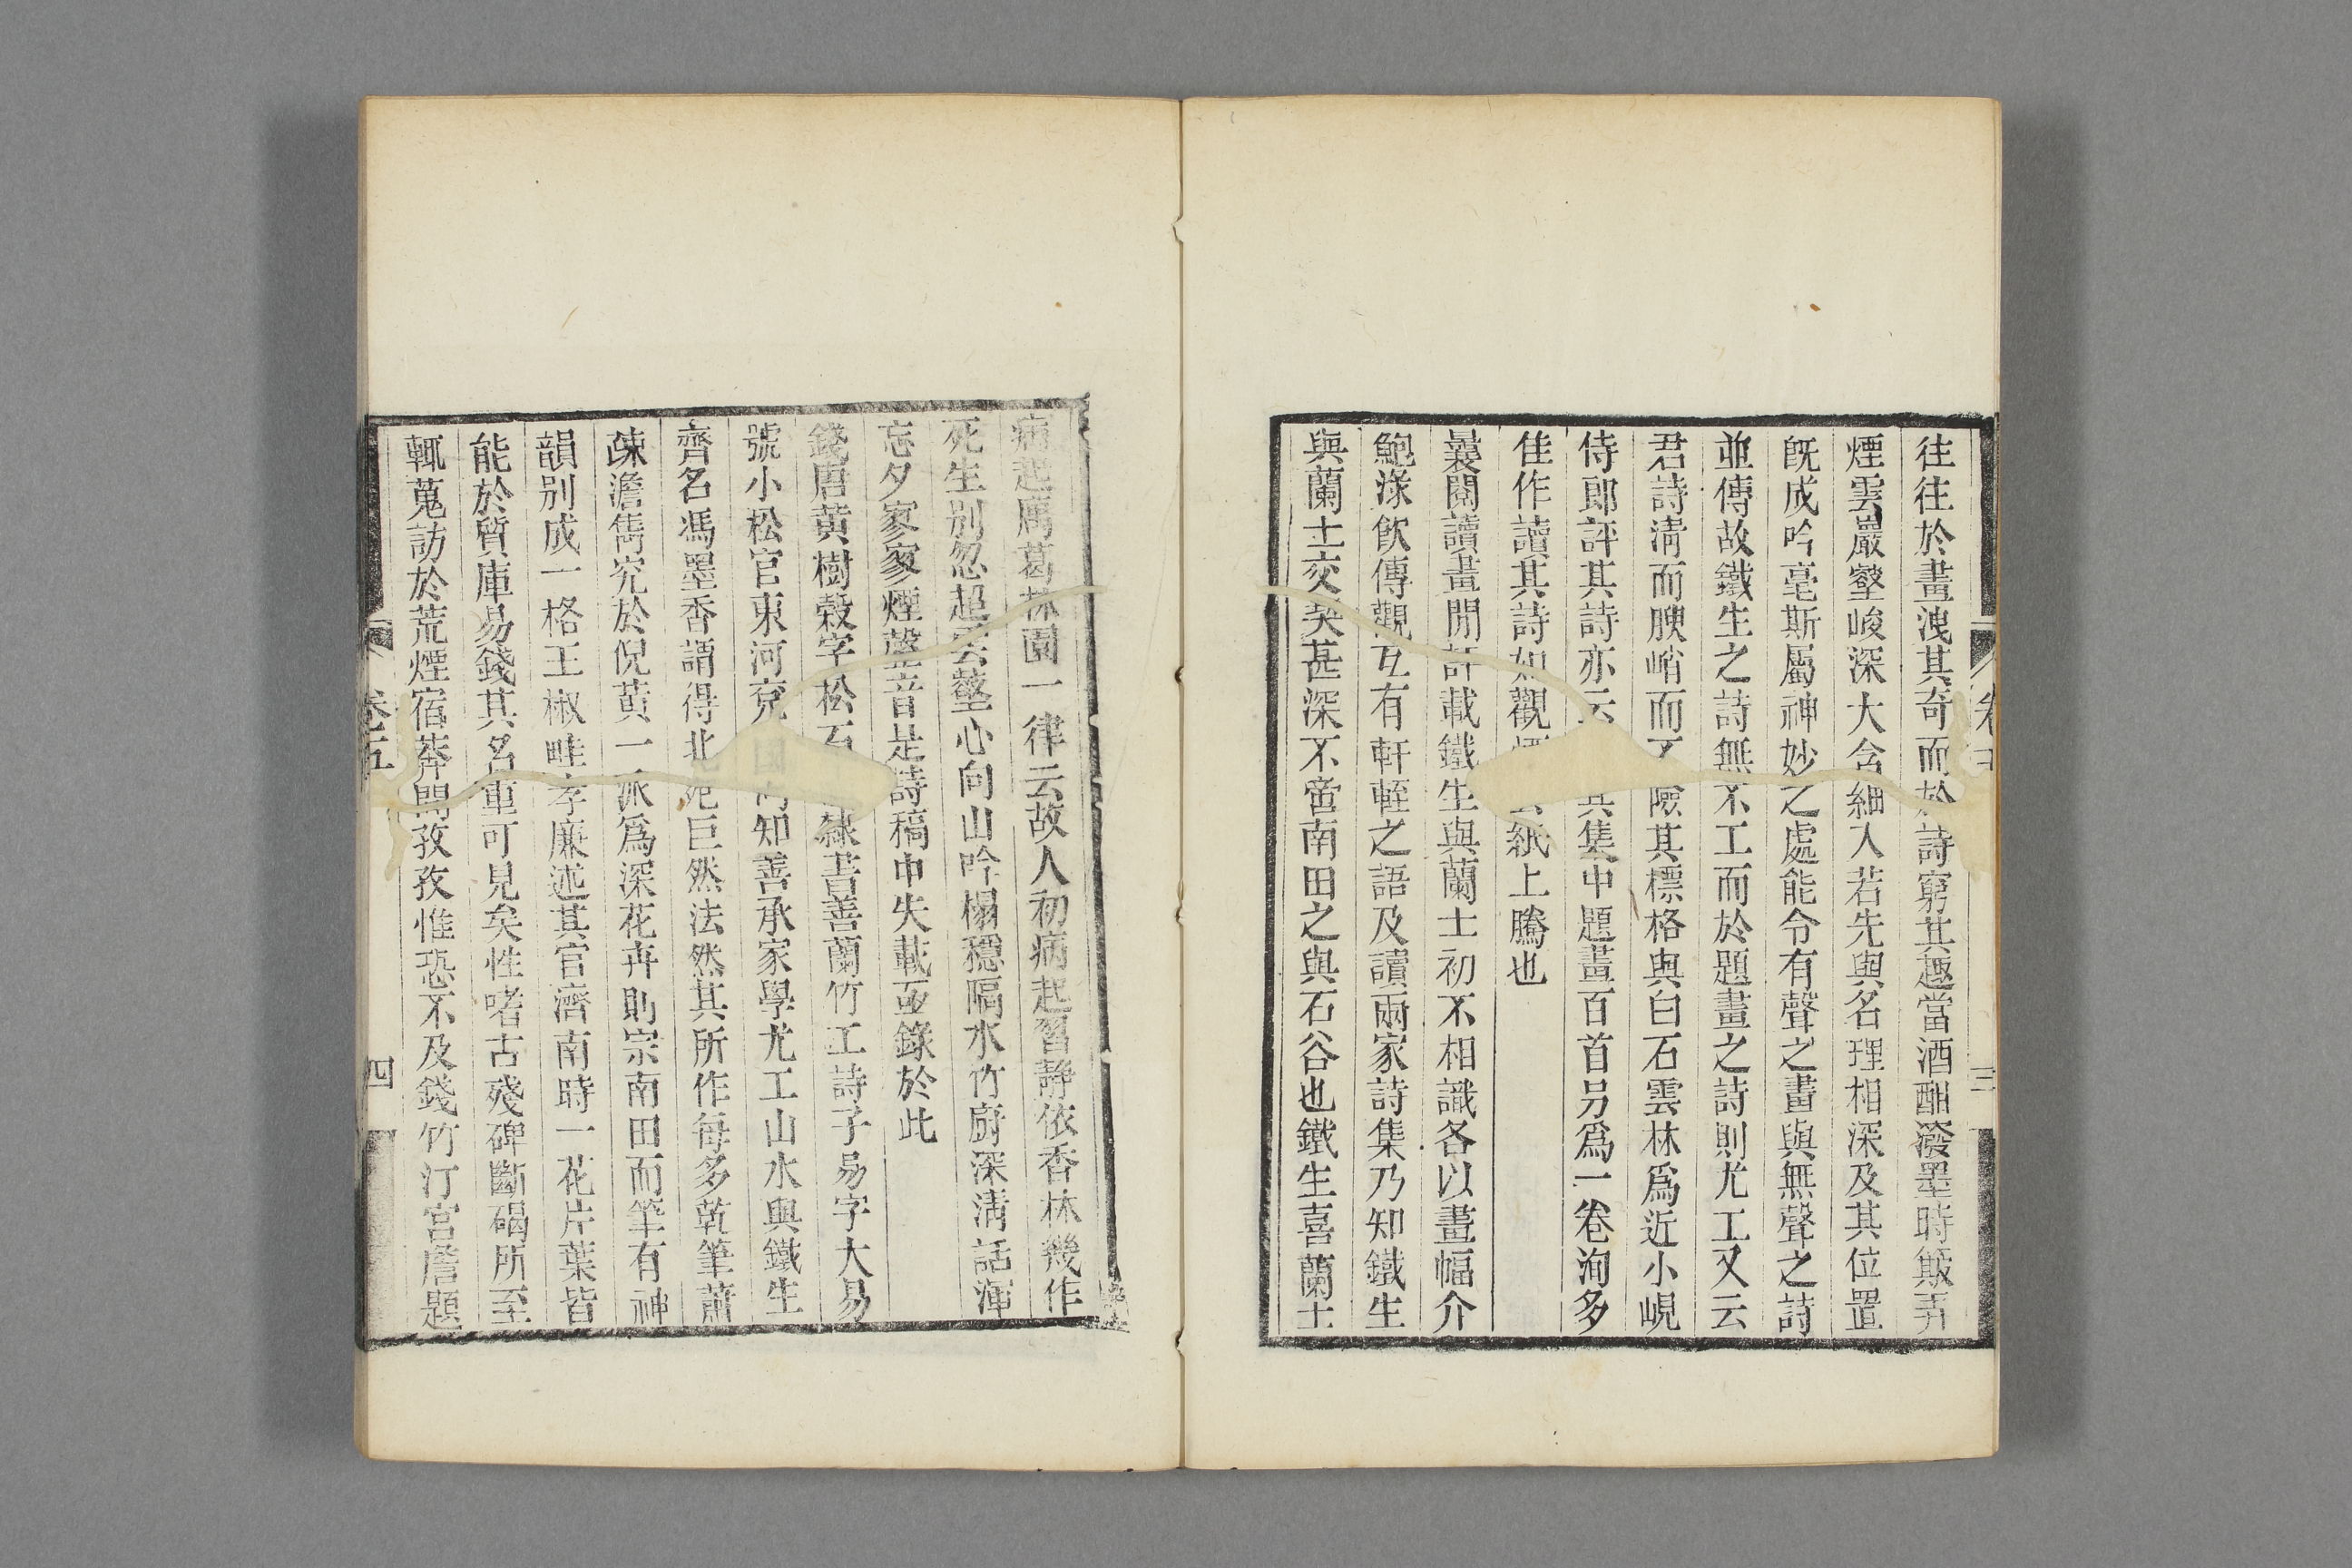 往往於畫洩其奇而於詩窮其趣當酒酣潑墨時簸弄
煙雲巖壑峻深大含細入若先與名理相深及其位置
旣成吟毫斯屬神妙之處能令有聲之畫與無聲之詩
並傳故鐵生之詩無不工而於題畫之詩則尤工又云
君詩淸而腴峭而不險其標格與白石雲林爲近小峴
侍郎評其詩亦云其集中題畫百首另爲一卷洵多
佳作讀其詩如觀煙雲紙上騰也
曩閱讀畫閒評載鐵生與蘭士初不相識各以畫幅介
鮑淥飮傳觀互有軒輊之語及讀兩家詩集乃知鐵生
與蘭士交契甚深不啻南田之與石谷也鐵生喜蘭士
卷五
三
病起萬葛林園一律云故人初病起習靜依香林幾作
死生別忽起雲壑心向山吟榻穩隔水竹廚深淸話渾
忘夕寥寥煙磬音是詩稿中失載亟錄於此
錢唐黃樹穀字松石隸書善蘭竹工詩子易字大易
號小松官東河兗知善承家學尤工山水與鐵生
齊名馮墨香謂得北苑巨然法然其所作每多乾筆蕭
疎澹雋究於倪黃一派爲深花卉則宗南田而筆有神
韻別成一格王椒畦孝廉述其官濟南時一花片葉皆
能於質庫易錢其名重可見矣性嗜古殘碑斷碣所至
輒蒐訪於荒煙宿莽間孜孜惟恐不及錢竹汀宮詹題
卷五
四